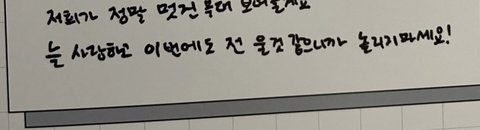 저희가 정말 멋진 무대 보여줄게요
늘 사랑하고 이번에도 전 울것 같으니까 놀리지마세요!